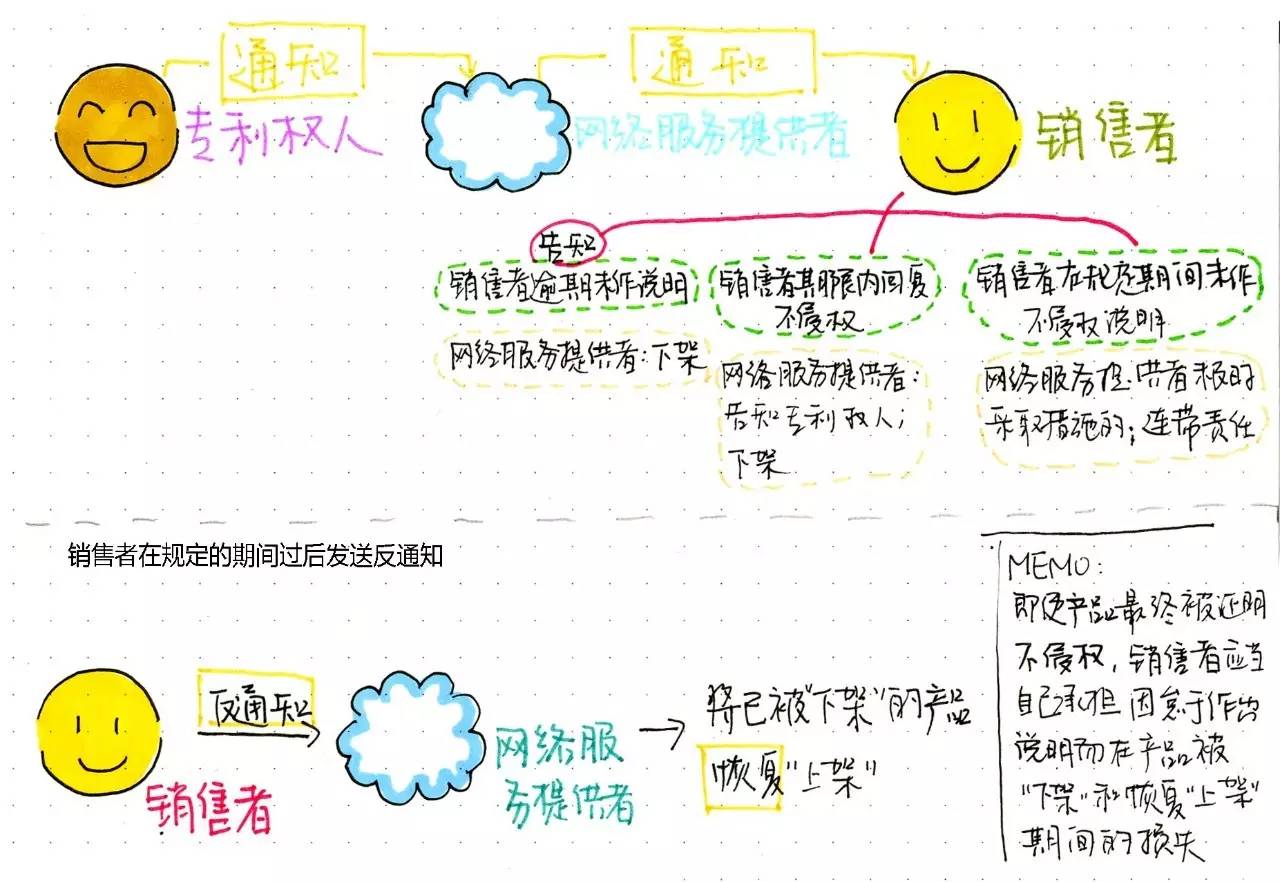 通知
通知
专利权人
网络服务提供者
销售者
告知
销售者逾期未作说明
网络服务提供者：下架
销售者期限内回复
不侵权
网络服务提供者：
告知专利权人；
下架
销售者在规定期间未作
不侵权说明
网络服务提供者积时
采取措施的；连带责任
销售者在规定的期间过后发送反通知
销售者
反通知
网络服
务提供者
将已被"下架"的产品
恢复"上架"
MEMO:
即使产品最终被证明
不侵权，销售者应当
自己承担因怠于作出
说明而在产品被
"下架"和恢复"上架"
期间的损失